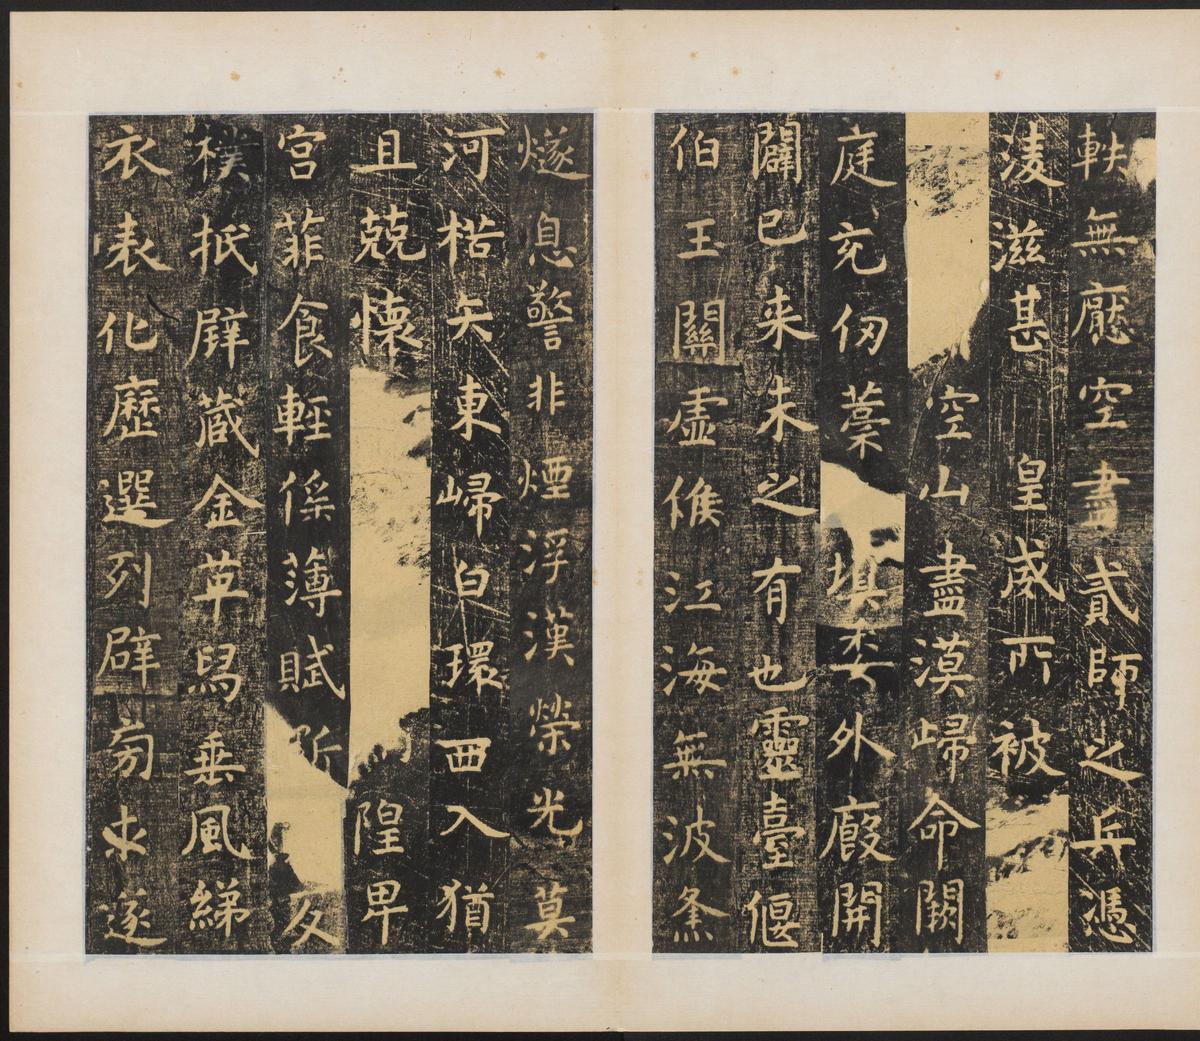 軼無懕空盡貳師之兵憑
淩滋甚皇威所被
空山盡漠歸命闕
庭充仞藁填委外廄開
闢已来未之有也靈臺偃
伯玉關虛候江海無波烽
燧息警非煙浮漢榮光莫
河楛矢東歸白環西入猶
且兢懷隍卑
宮菲食輕徭薄賦斲反
樸抵璧藏金革舄垂風綈
衣表化歷選列辟旁求遂